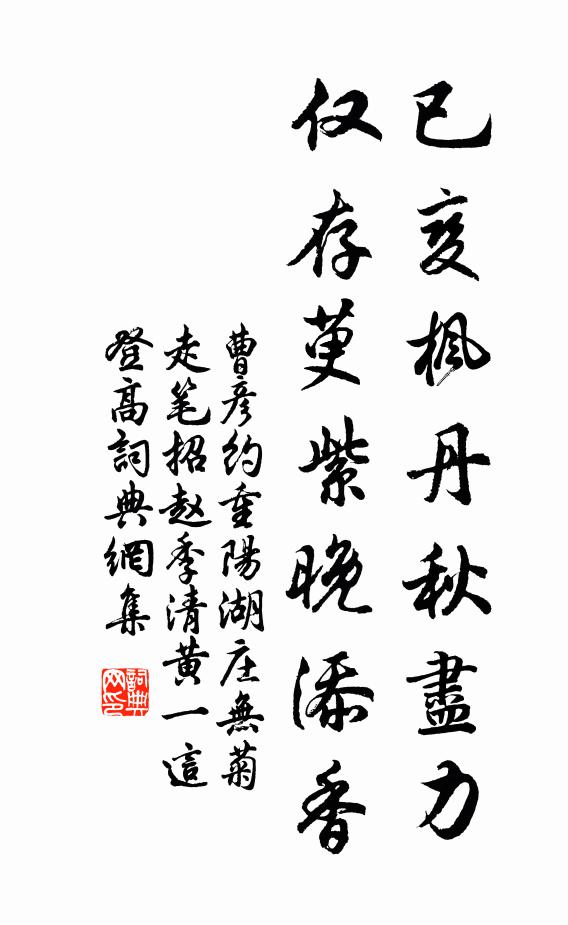 已变楓丹秋盡力
仅存萸紫晚添香
曹彦约重陽湖庄無菊
走笔招赵季清黄一這
登高詞典網集
詞典
网印